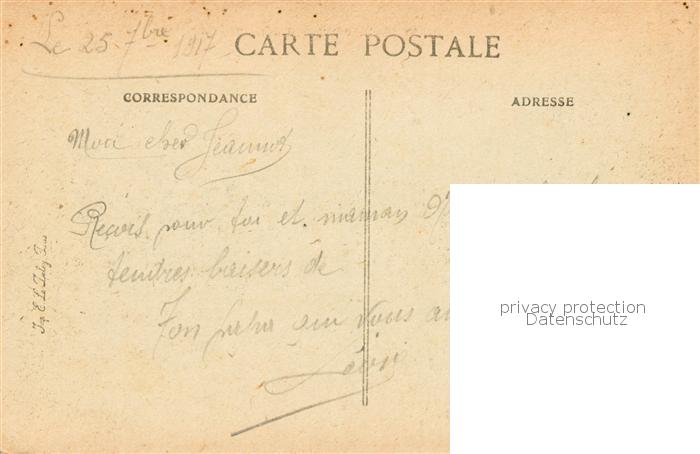 Le 25 7bre 1917
CARTE POSTALE
CORRESPONDANCE
ADRESSE
Mon cher Jeannot
Reçois pour toi et maman
tendres baisers de
Ton papa qui vous
Léon
Imp. E. Le Deley, Paris
privacy protection
Datenschutz